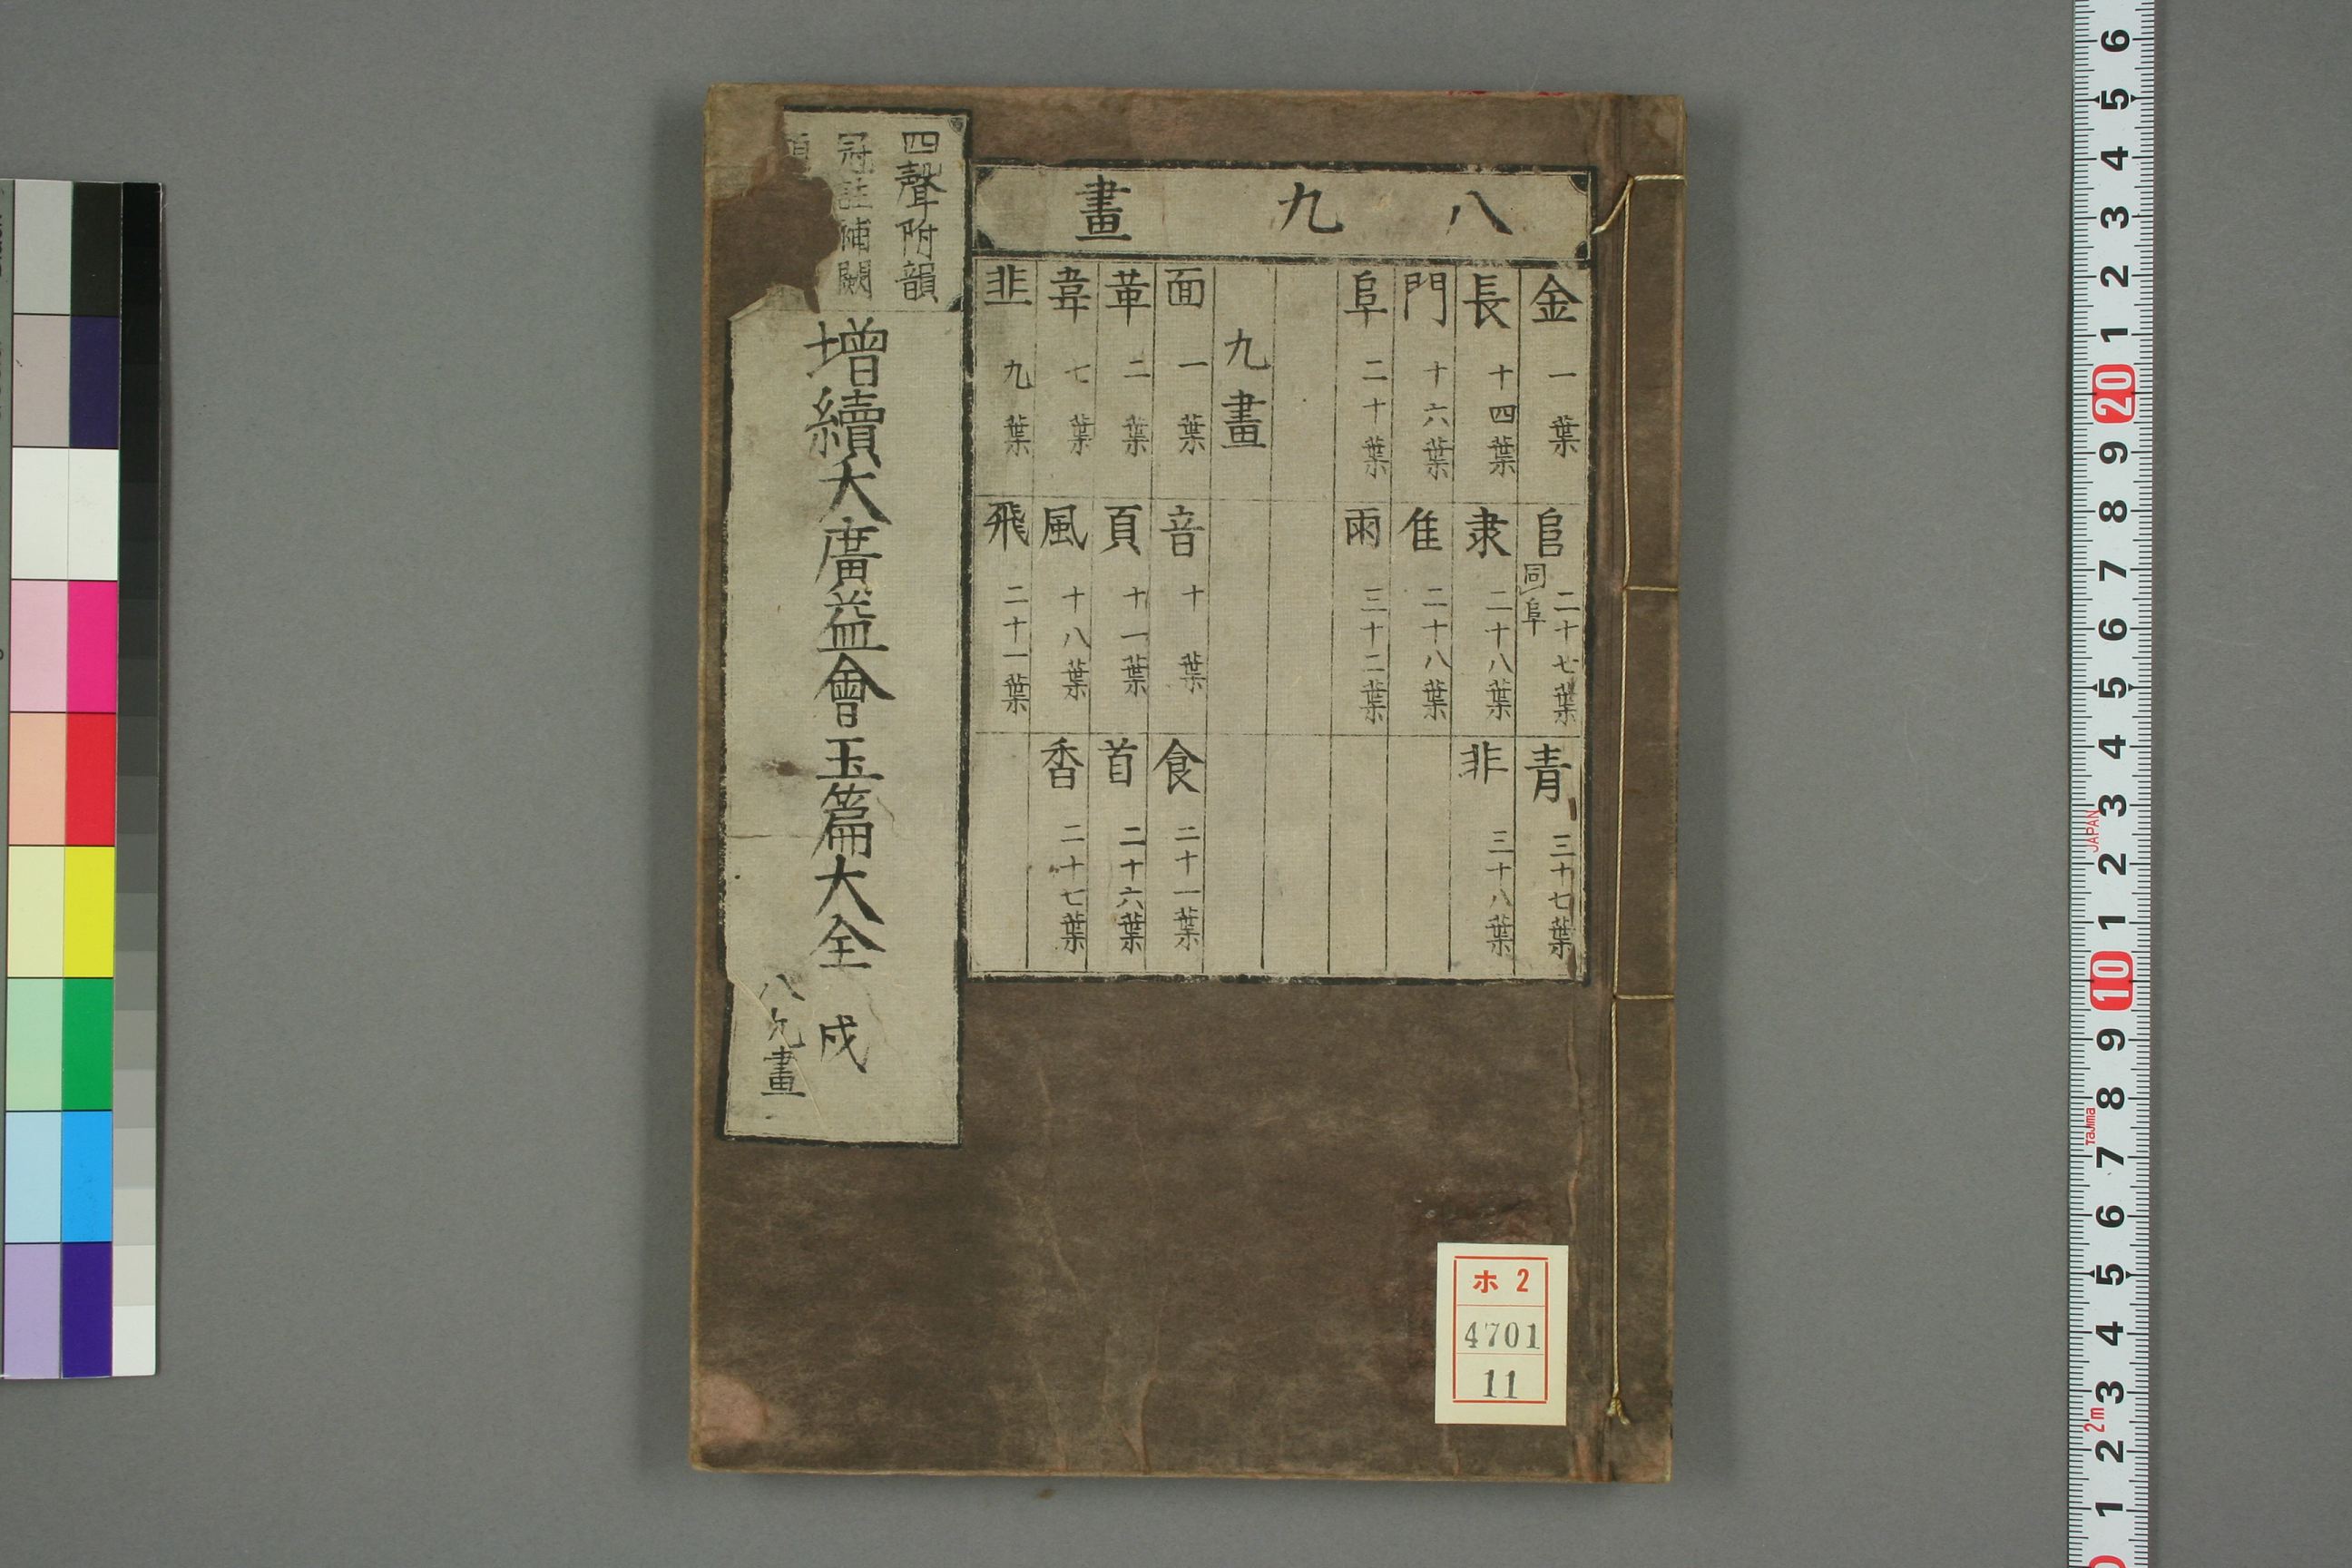 八九畫
金 一葉
長 十四葉
門 十六葉
阜 二十葉
九畫
面 一葉
革 二葉
韋 七葉
韭 九葉
𨸏 同阜 二十七葉
隶 二十八葉
隹 二十八葉
雨 三十二葉
音 十葉
頁 十一葉
風 十八葉
飛 二十一葉
青 三十七葉
非 三十八葉
食 二十一葉
首 二十六葉
香 二十七葉
四聲附韻
冠註補闕
增續大廣益會玉篇大全 戌
八九畫
ホ 2
4701
11
6
5
4
3
2
1
20
9
8
7
6
5
4
3
2
1
10
9
8
7
6
5
4
3
2
1
JAPAN
Tajima
2m